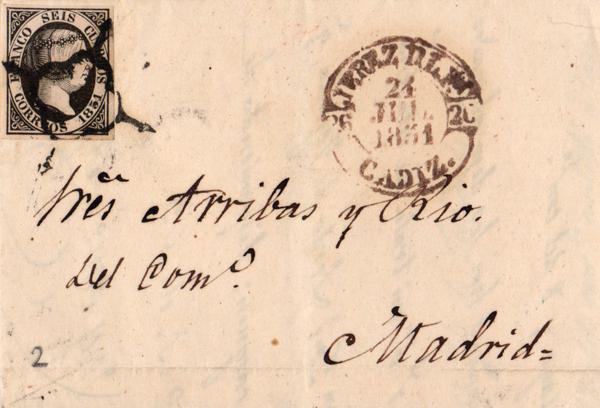 FRANCO SEIS CUARTOS
CORREOS 1851
JEREZ DLF.
24
JUL.
1851
26
CADIZ.
Arribas y Rio.
del Com.º
Madrid=
2